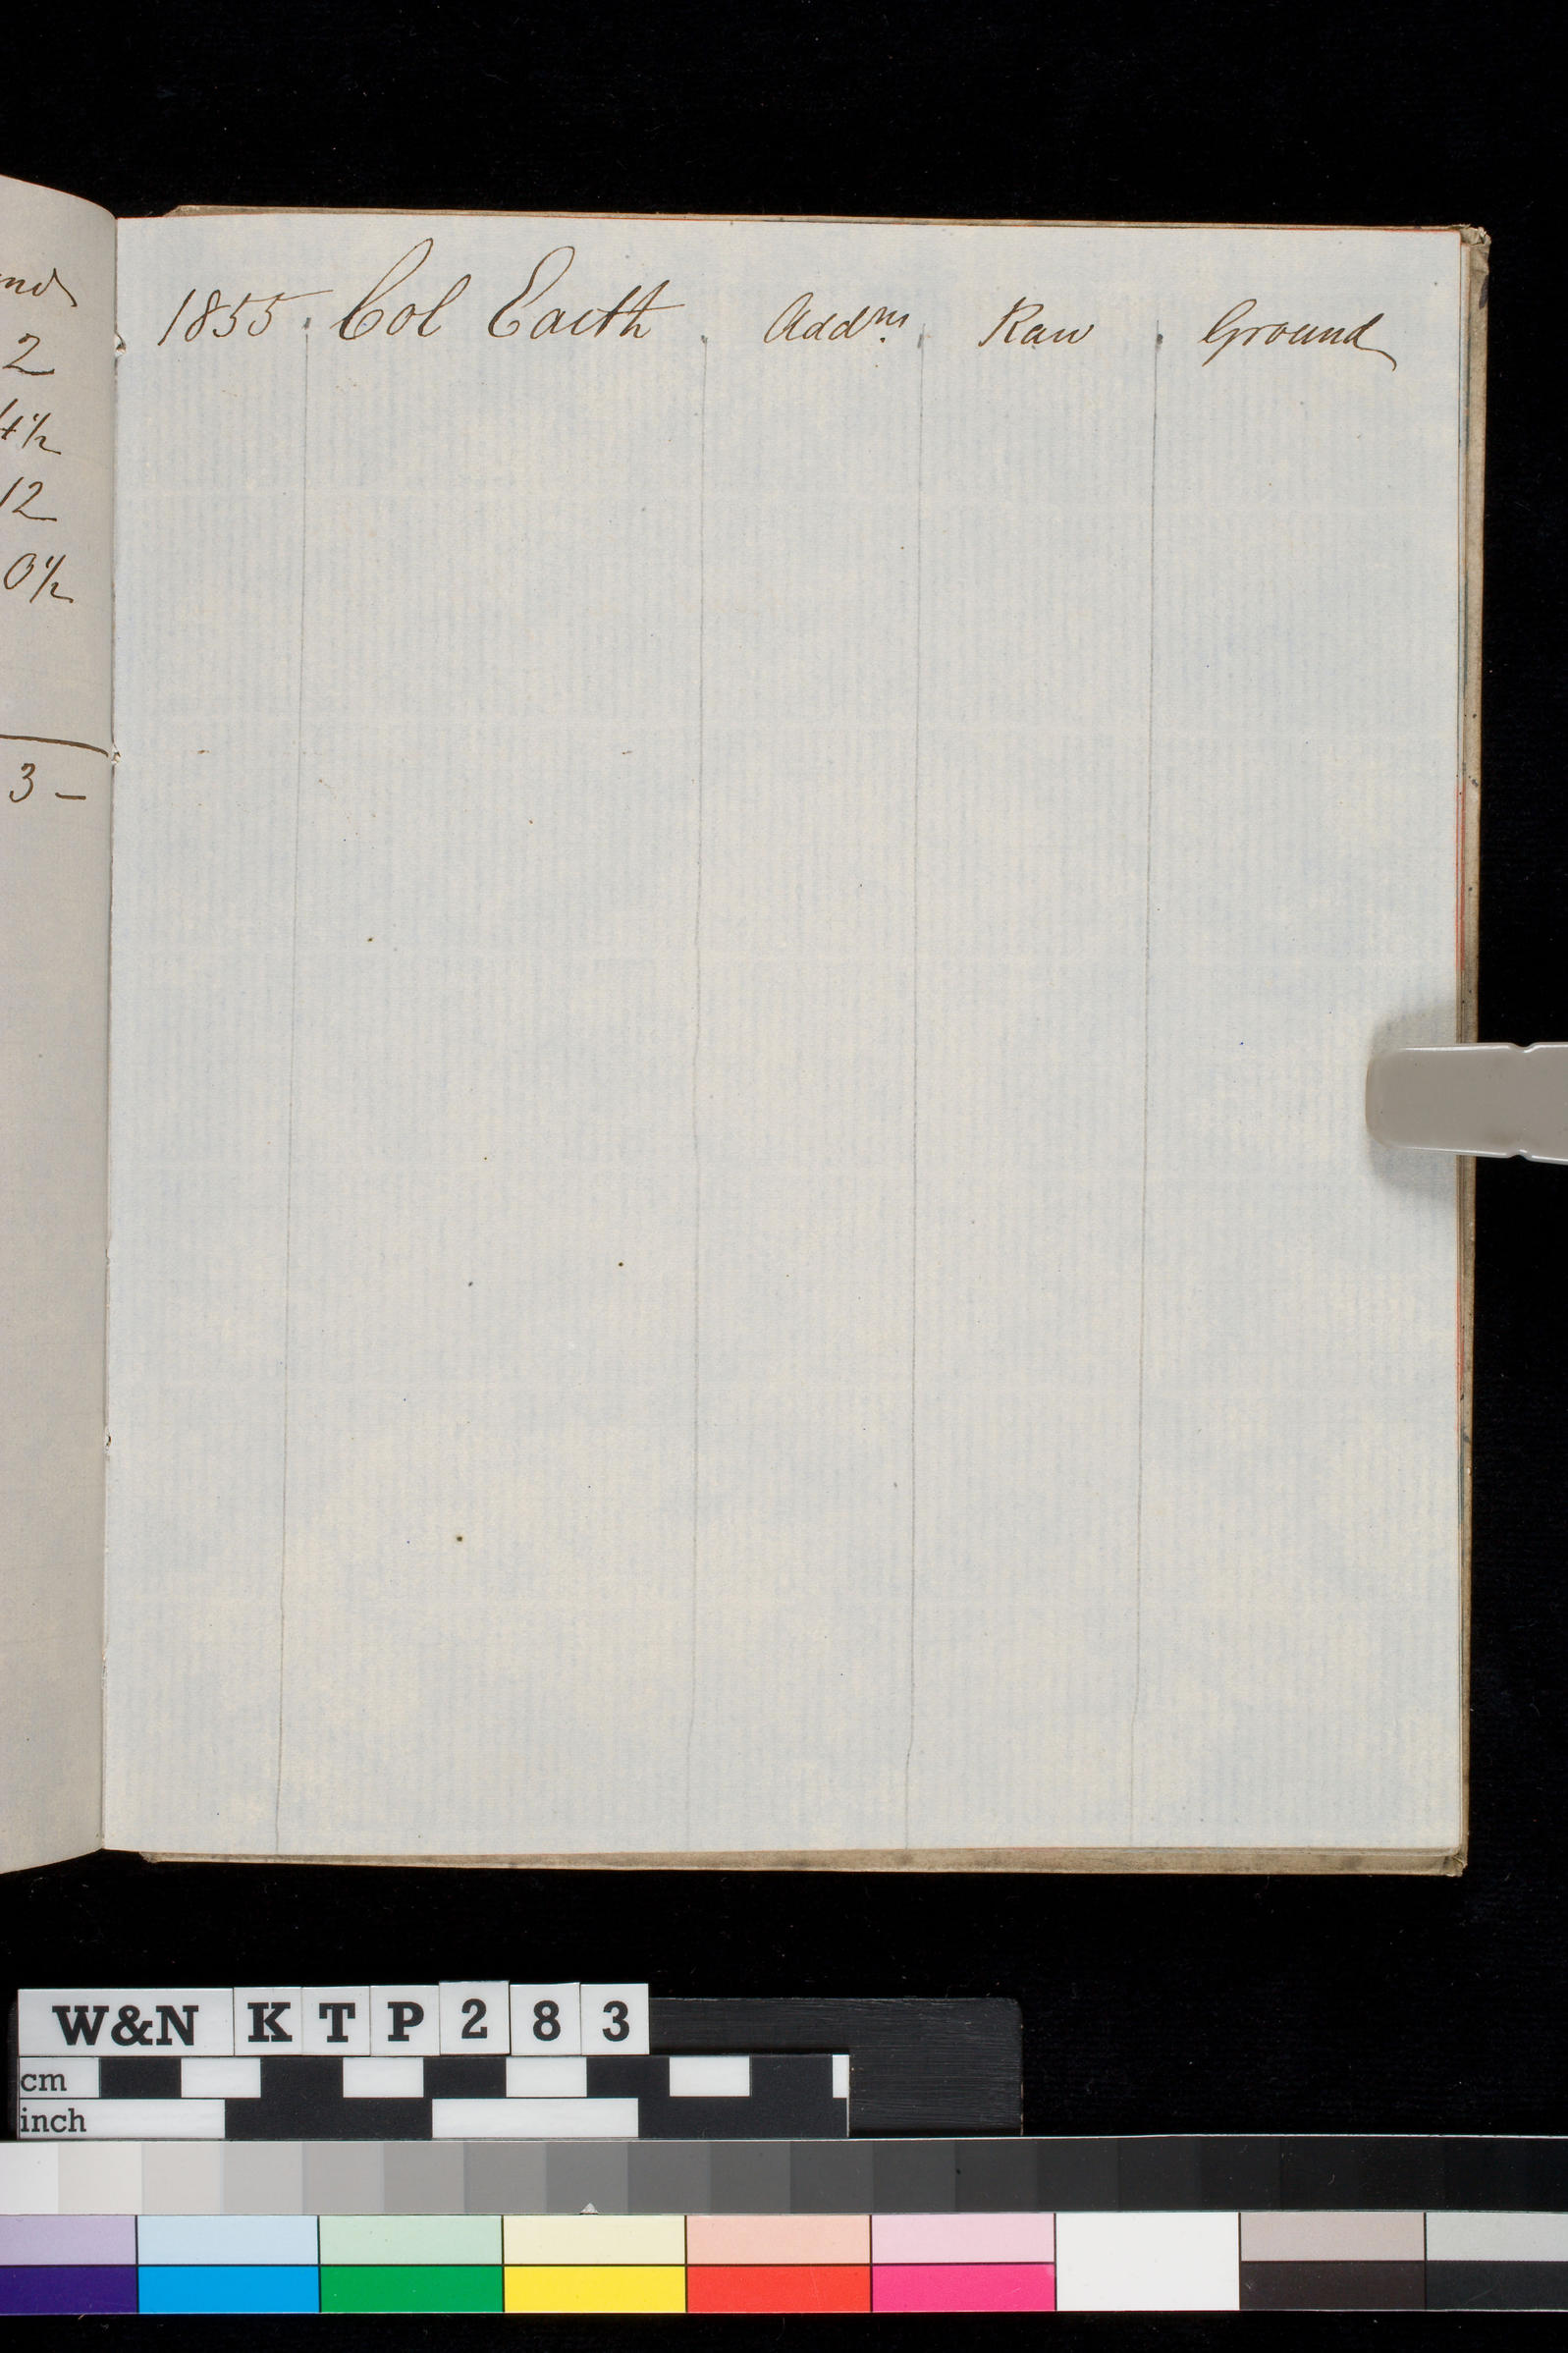 2
4½
12
0½
3 –
1855 . Col Earth . Addns. Raw . Ground
W&N KTP283
cm
inch